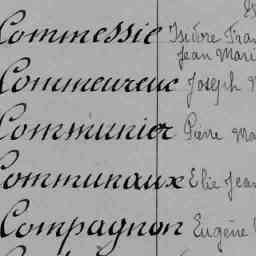 Commessie Isidore
Jean
Commeureuc Joseph
Communier Pierre
Communaux Elie Jean
Compagnon Eugène